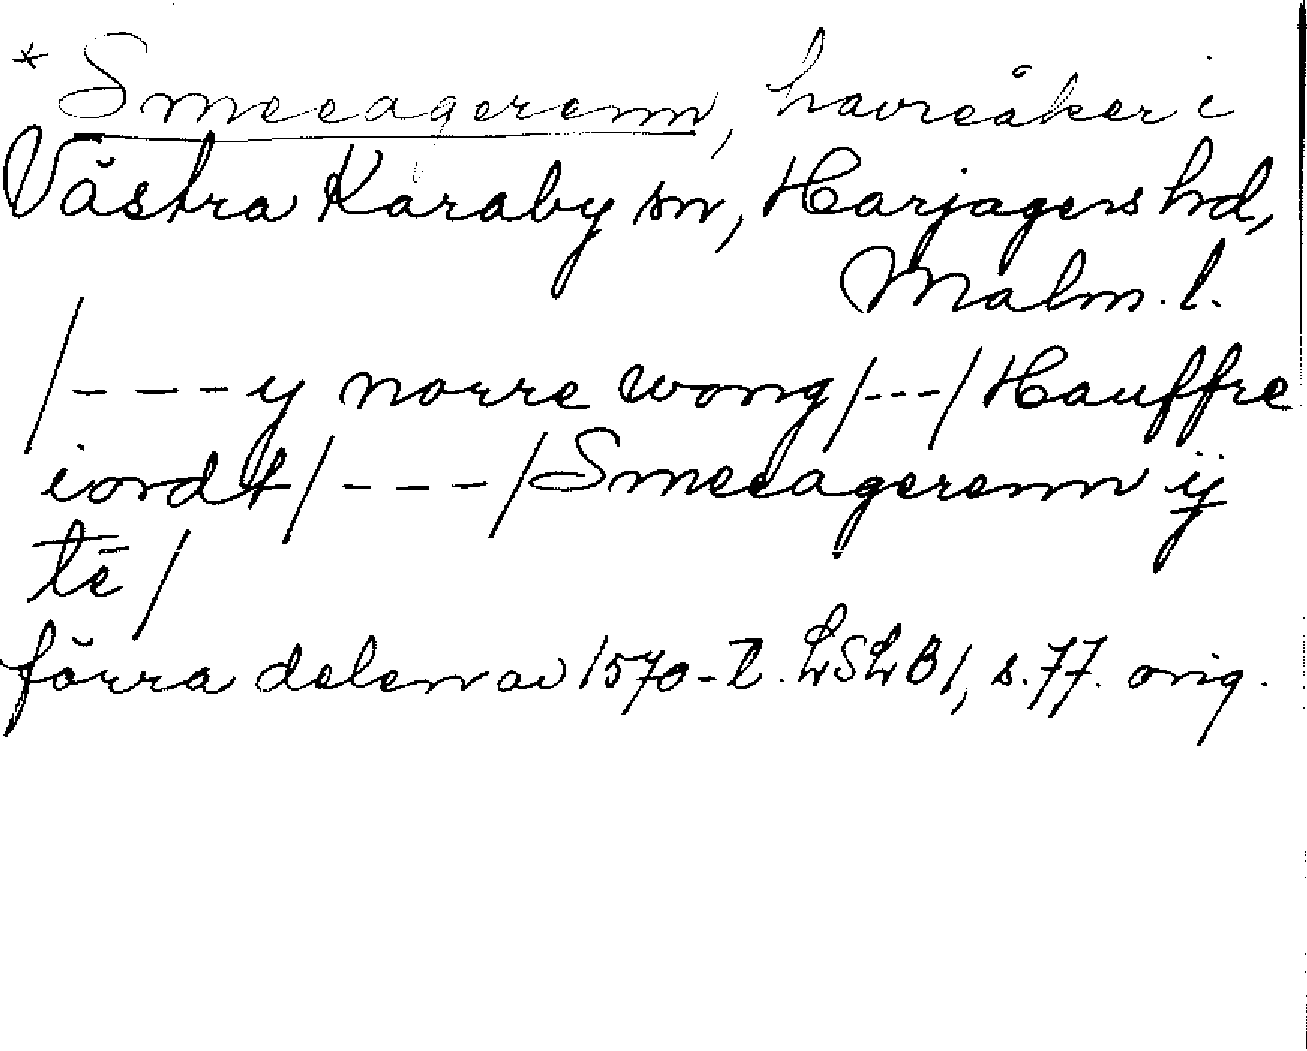 * Smeeagerenn, havreåker i
Västra Karaby sn, Harjagers hd,
Malm. l.
/---y norre wong/---/Hauffre
iordt/---/Smeeagerenn ij
tē/
förra delen av 1570-t. LSLB1, s. 77. orig.